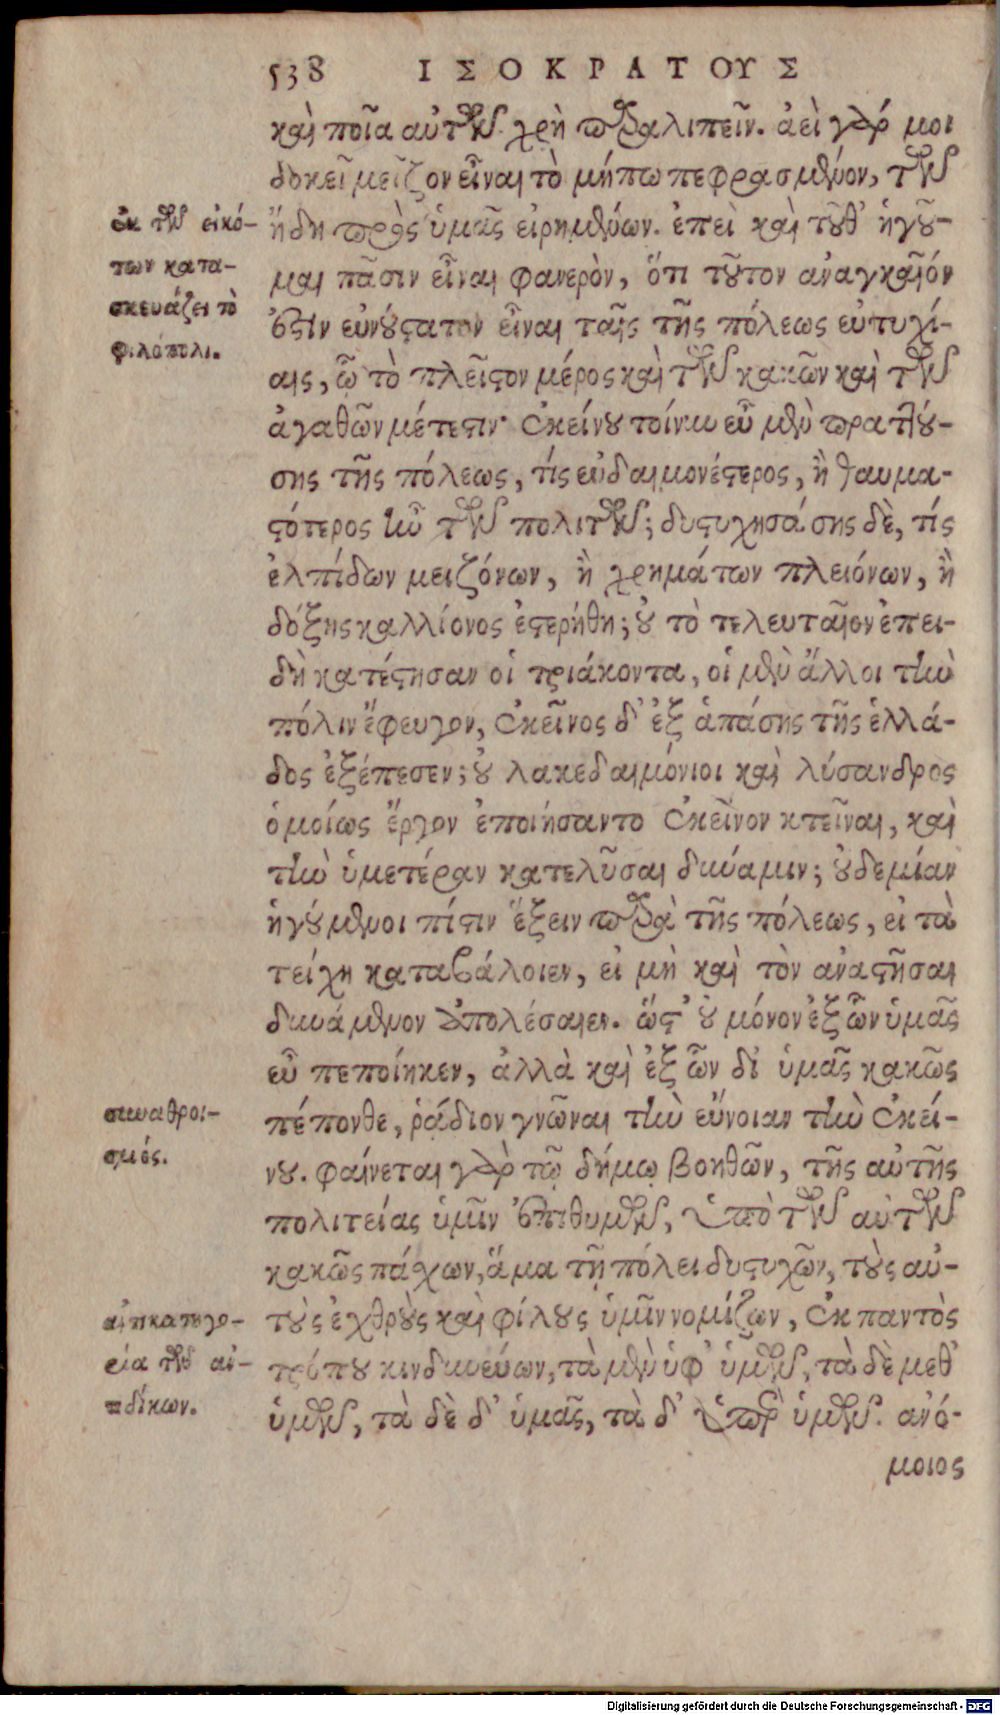 538 ΙΣΟΚΡΑΤΟΥΣ
καὶ ποῖα αὐτῶν χρὴ παραλιπεῖν. ἀεὶ γάρ μοι
δοκεῖ μεῖζον εἶναι τὸ μήπω πεφρασμένον, τῶν
ἤδη πρὸς ὑμᾶς εἰρημένων. ἐπεὶ καὶ τοῦθ' ἡγοῦ-
μαι πᾶσιν εἶναι φανερὸν, ὅτι τοῦτον ἀναγκαῖόν
ἐστιν εὐνούστατον εἶναι ταῖς τῆς πόλεως εὐτυχί-
αις, ᾧ τὸ πλεῖστον μέρος καὶ τῶν κακῶν καὶ τῶν
ἀγαθῶν μέτεστιν· ἐκείνου τοίνυν εὖ μὲν πραττού-
σης τῆς πόλεως, τίς εὐδαιμονέστερος, ἢ θαυμα-
στότερος ἦν τῶν πολιτῶν; δυστυχησάσης δὲ, τίς
ἐλπίδων μειζόνων, ἢ χρημάτων πλειόνων, ἢ
δόξης καλλίονος ἐστερήθη; οὐ τὸ τελευταῖον ἐπει-
δὴ κατέστησαν οἱ τριάκοντα, οἱ μὲν ἄλλοι τὴν
πόλιν ἔφευγον, ἐκεῖνος δ' ἐξ ἁπάσης τῆς ἑλλά-
δος ἐξέπεσεν; οὐ λακεδαιμόνιοι καὶ λύσανδρος
ὁμοίως ἔργον ἐποιήσαντο ἐκεῖνον κτεῖναι, καὶ
τὴν ὑμετέραν καταλῦσαι δύναμιν; οὐδεμίαν
ἡγούμενοι πίστιν ἕξειν παρὰ τῆς πόλεως, εἰ τὰ
τείχη καταβάλοιεν, εἰ μὴ καὶ τὸν ἀναστῆσαι
δυνάμενον ἀπολέσαιεν. ὥστ' οὐ μόνον ἐξ ὧν ὑμᾶς
εὖ πεποίηκεν, ἀλλὰ καὶ ἐξ ὧν δι' ὑμᾶς κακῶς
πέπονθε, ῥάδιον γνῶναι τὴν εὔνοιαν τὴν ἐκεί-
νου. φαίνεται γὰρ τῷ δήμῳ βοηθῶν, τῆς αὐτῆς
πολιτείας ὑμῖν ἐπιθυμῶν, ὑπὸ τῶν αὐτῶν
κακῶς πάσχων, ἅμα τῇ πόλει δυστυχῶν, τοὺς αὐ-
τοὺς ἐχθροὺς καὶ φίλους ὑμῖν νομίζων, ἐκ παντὸς
τρόπου κινδυνεύων, τὰ μὲν ὑφ' ὑμῶν, τὰ δὲ μεθ'
ὑμῶν, τὰ δὲ δι' ὑμᾶς, τὰ δ' ὑπὲρ ὑμῶν. ἀνό-
μοιος
ἐκ τῶν εἰκό-
των κατα-
σκευάζει τὸ
φιλόπολι.
συναθροι-
σμός.
ἀντικατηγο-
ρία τῶν ἀν-
τιδίκων.
Digitalisierung gefördert durch die Deutsche Forschungsgemeinschaft - DFG